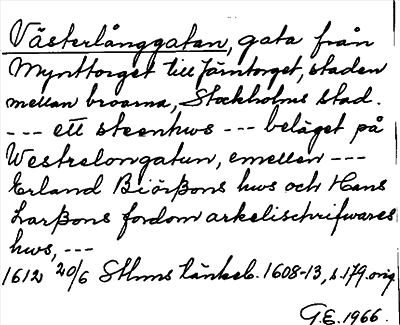 Västerlånggatan, gata från
Mynttorget till Järntorget, staden
mellan broarna, Stockholms stad.
--- ett steenhws --- beläget på
Westrelongatun, emellen ---
Erland Biörßons hws och Hans
Larßons fordom arkelischrifwares
hws, ---
1612 20/6 Sthms tänkeb. 1608-13, s. 179. orig
G.E. 1966.